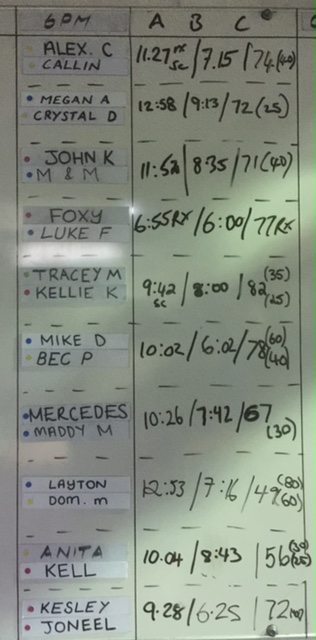 6PM A B C
ALEX. C 11.27 RX SC / 7.15 / 74 (40)
CALLIN
MEGAN A 12:58 / 9:13 / 72 (25)
CRYSTAL D
JOHN K / 8:35 / 71 (40)
M & M
FOXY 6:55RX / 6:00 / 77RX
LUKE F
TRACEY M (35)
KELLIE K 9:42 SC / 8:00 / 82 (25)
MIKE D (60)
BEC P 10:02 / 6:02 / 78 (40)
MERCEDES 10:26 / 7:42 / 67
MADDY M (30)
LAYTON 12:53 / 7:16 / 49 (80)
DOM. m (60)
ANITA 10.04 / 8:43 / 56
KELL
KESLEY 9.28 / 6:25 / 72
JONEEL